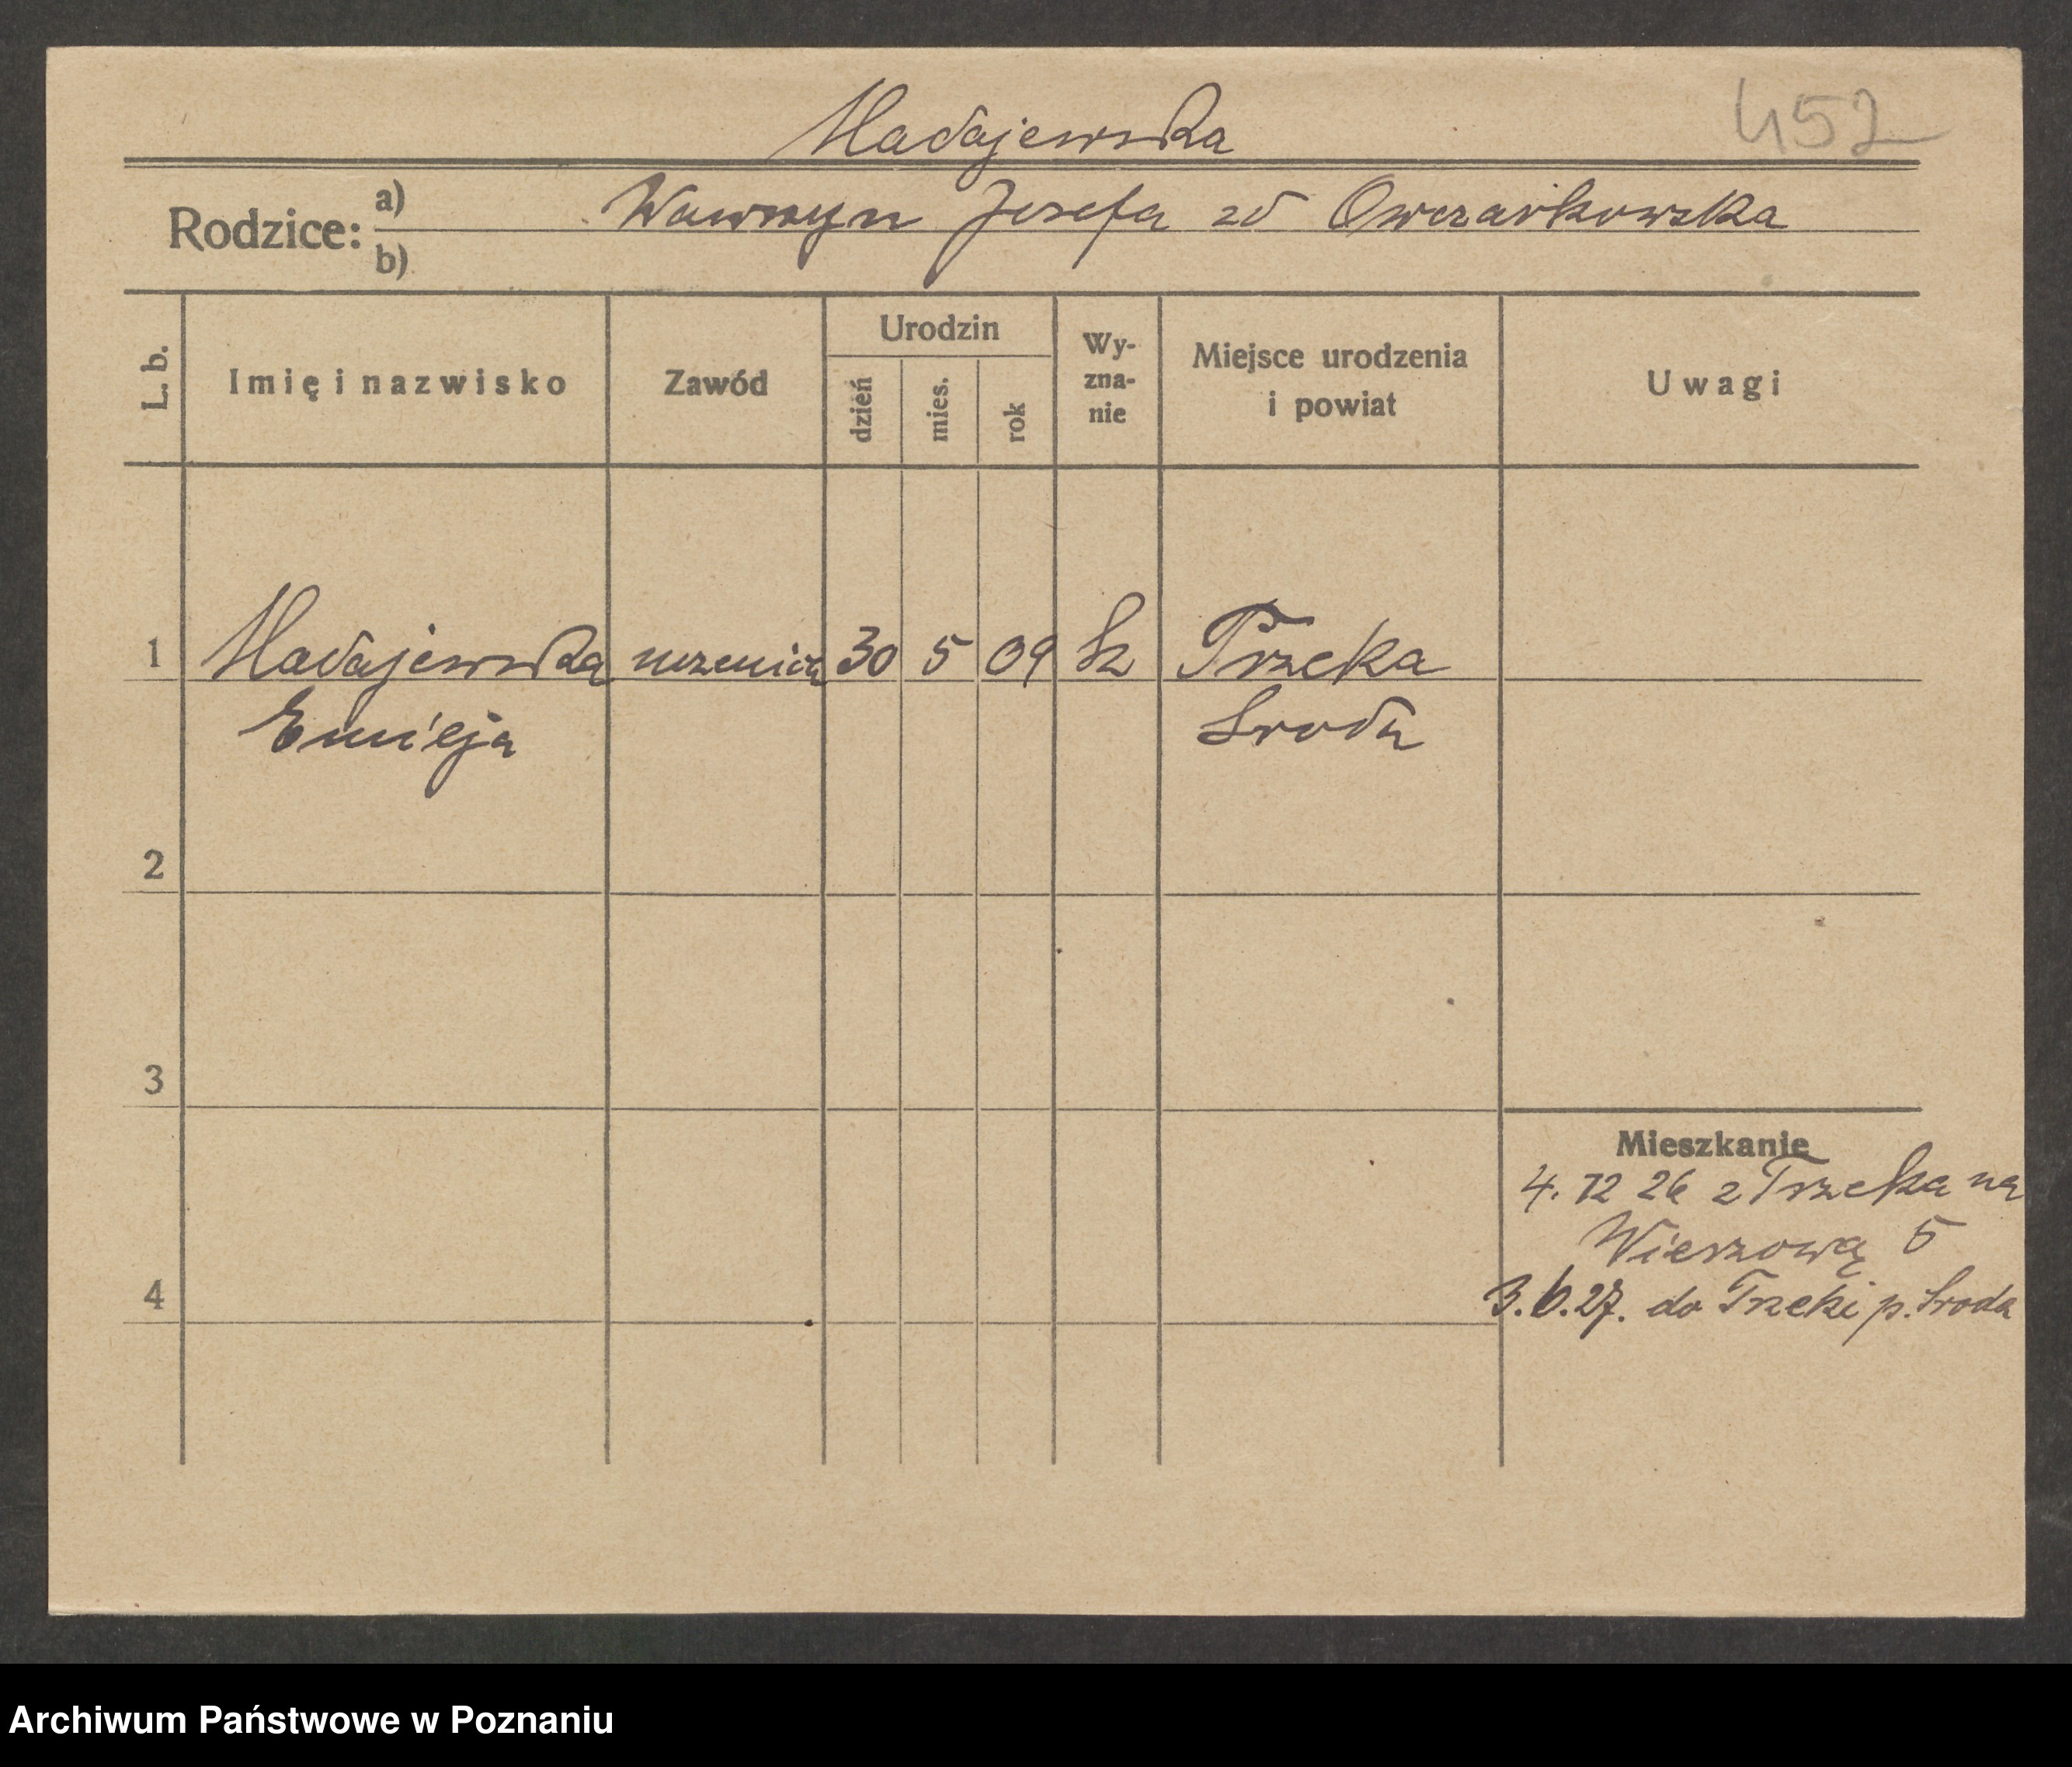 Madajewska
452
Rodzice: a) Wawrzyn Josefa zd Owczarkowska
b)
L. b.
Imię i nazwisko
Zawód
Urodzin
dzień
mies.
rok
Wy-
zna-
nie
Miejsce urodzenia
i powiat
Uwagi
1 Madajewska uczenica 30 5 09 Trzeka
Emilja Sroda
2
3
Mieszkanie
4. 12 26 z Trzeka na
Wierzową 5
3.6.27. do Trzeki p. Sroda
4
Archiwum Państwowe w Poznaniu